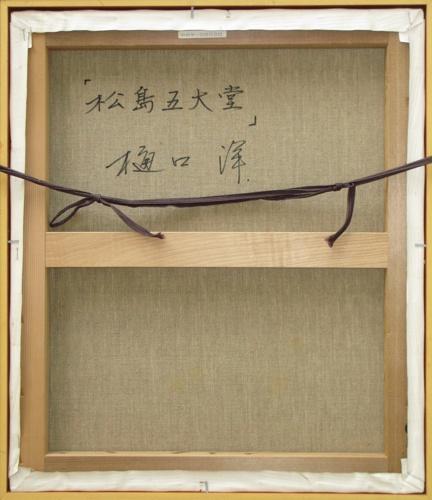 「松島五大堂」
樋口 洋